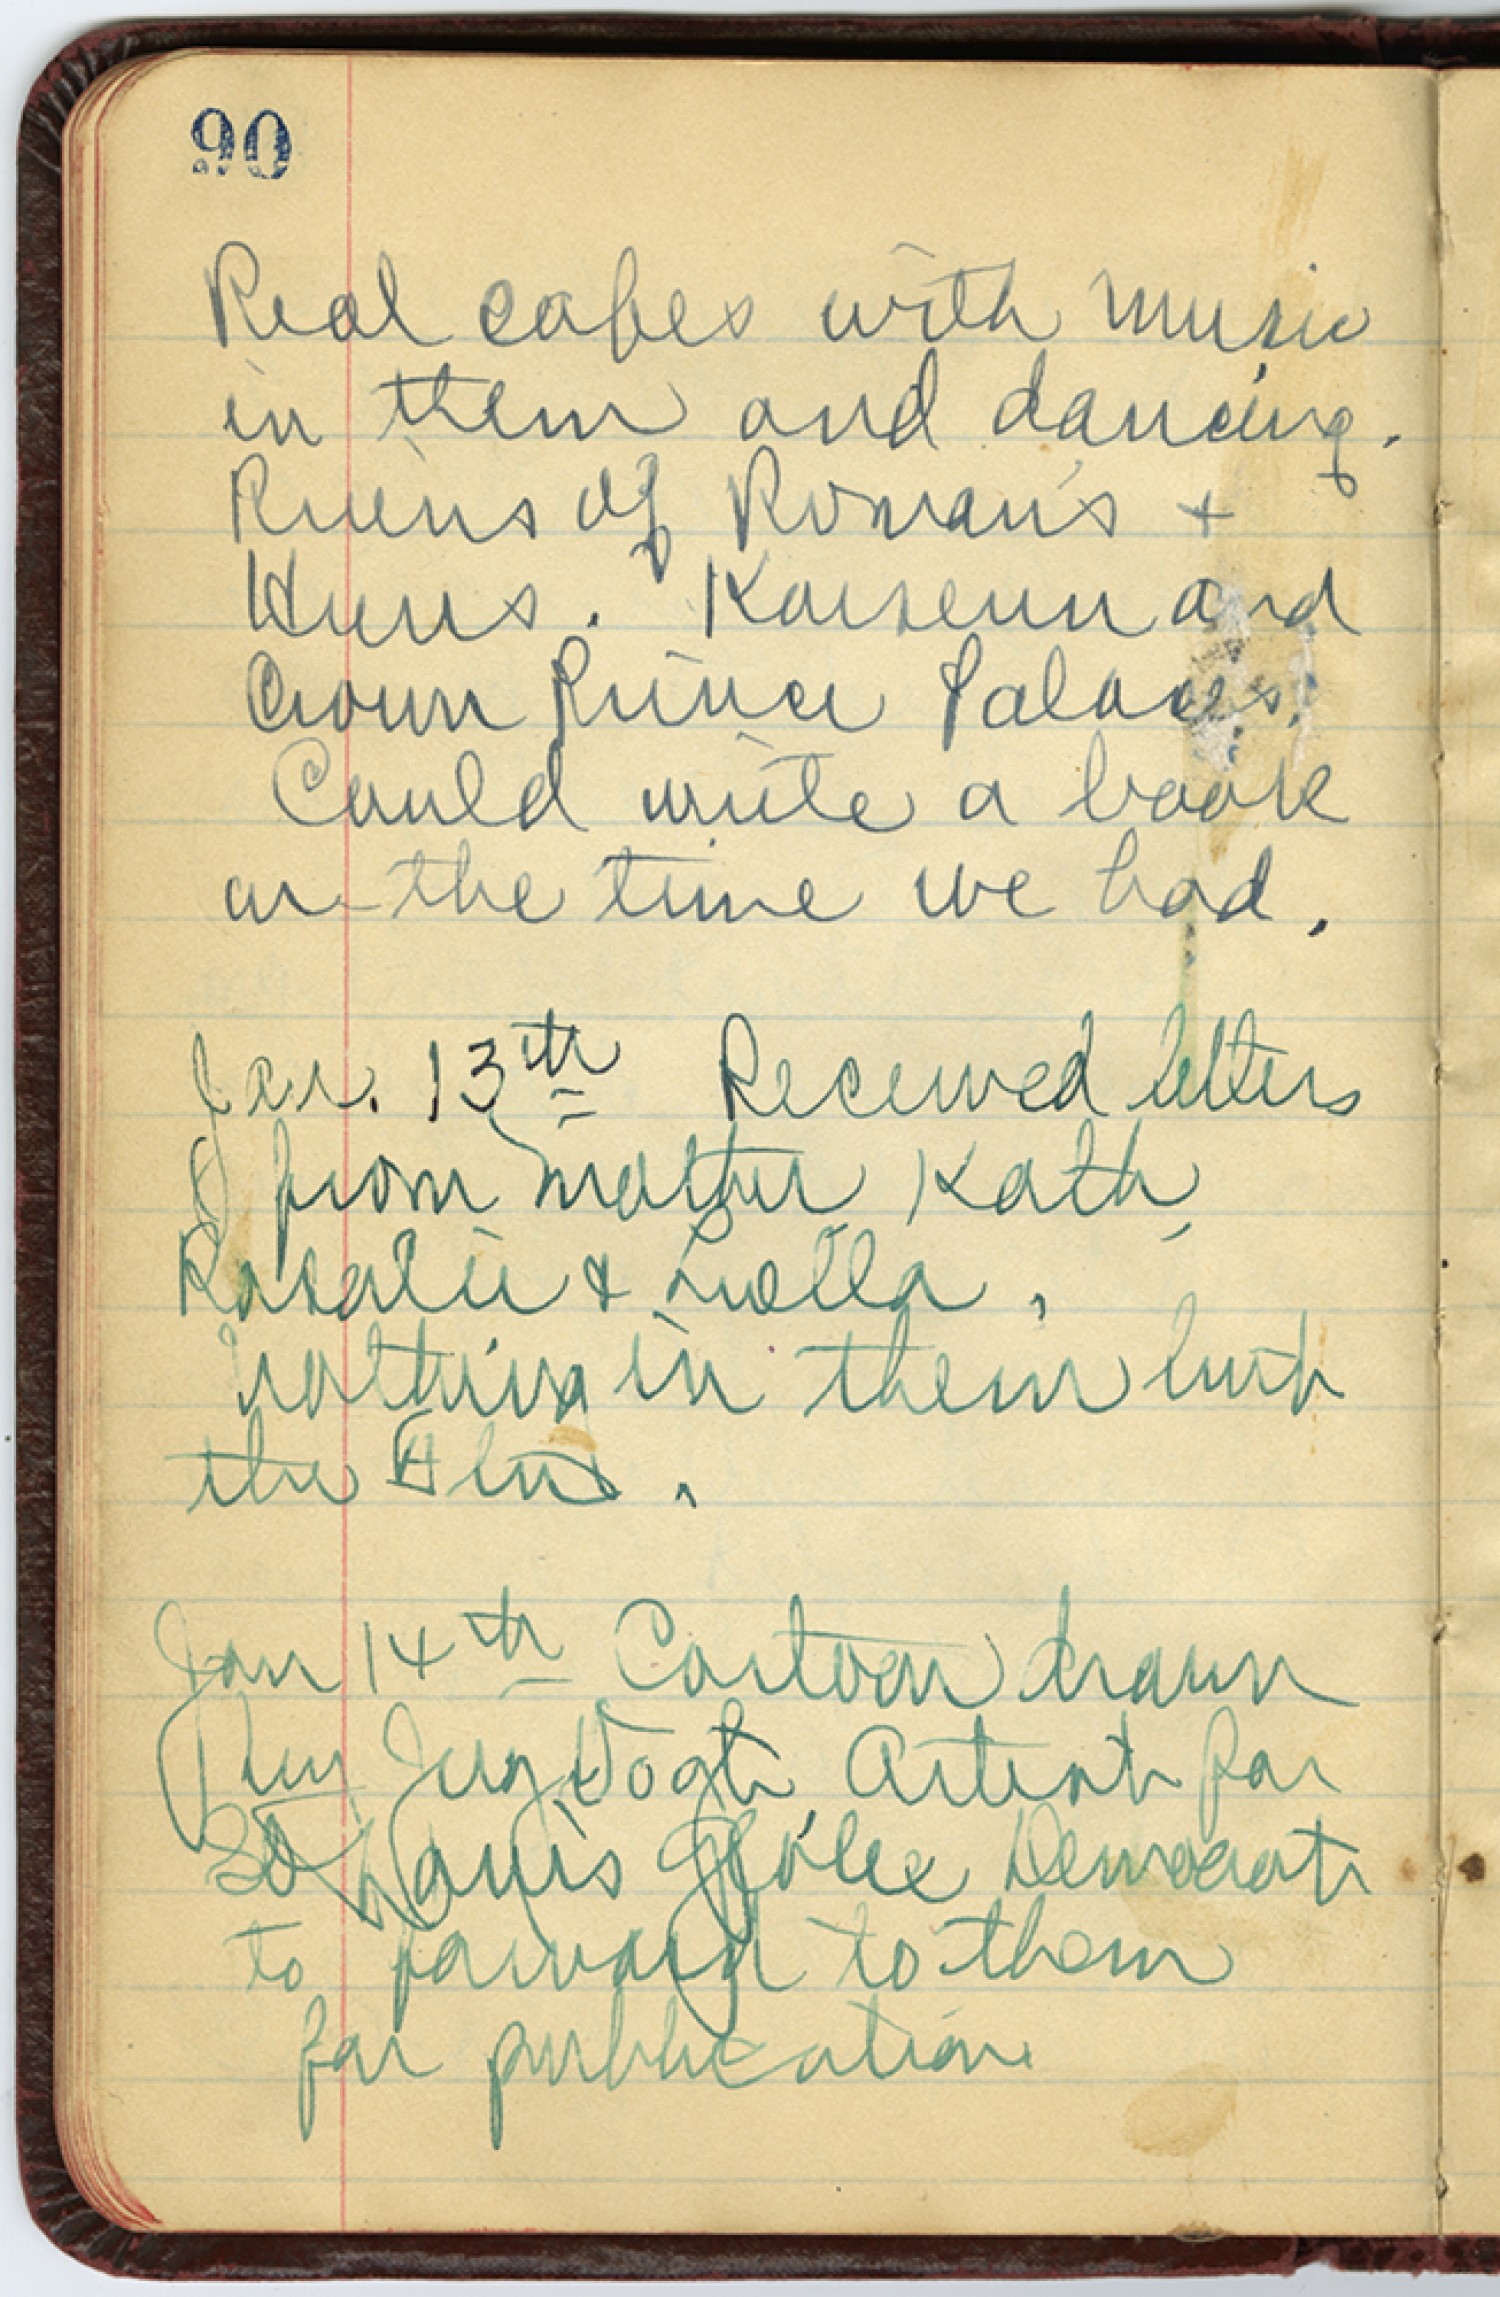 90
Real cafes with music
in them and dancing.
Ruins of Romans +
Huns. Kaiserin and
Crown Prince Palaces.
Could write a book
on the time we had.
Jan. 13th Received letters
from Mother Kath
Rosalie & Luella.
Nothing in them but
the Flu.
Jan 14th Cartoon drawn
by Vogt Artist for
St Louis Globe Democrat
to forward to them
for publication